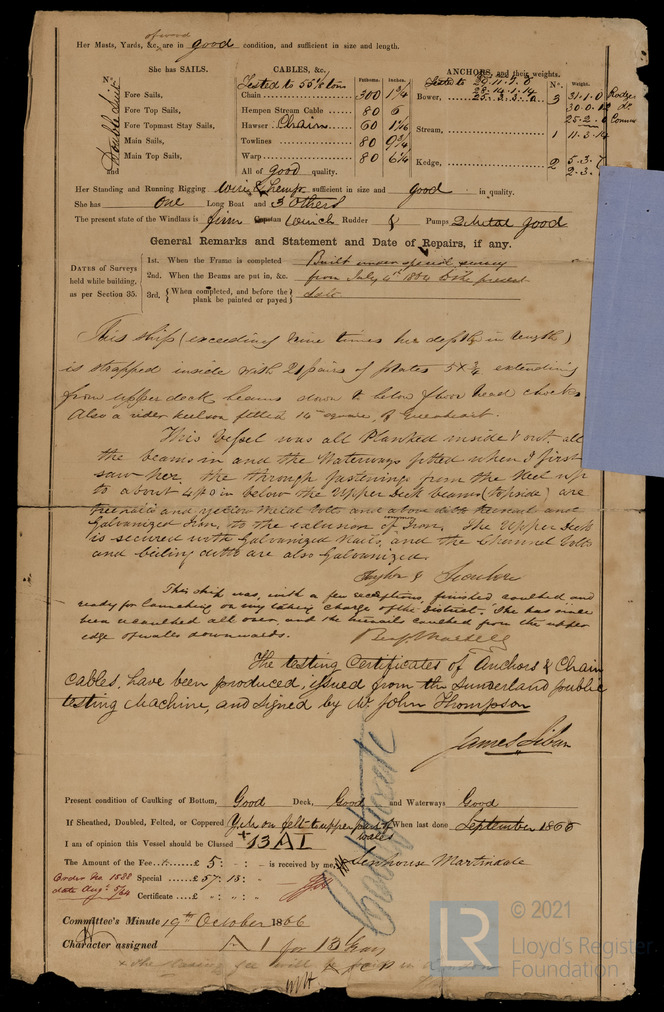 of wood
Her Masts, Yards, &c. are in good condition, and sufficient in size and length.
She has SAILS.
N°.
Double Suit
Fore Sails,
Fore Top Sails,
Fore Topmast Stay Sails,
Main Sails,
Main Top Sails,
and
CABLES, &c.
Fathoms. Inches.
Tested to 55 1/8 tons
Chain 300 1 3/4
Hempen Stream Cable 80 6
Hawser Chain 60 1 1/16
Towlines 80 9 3/4
Warp 80 6 1/4
All of good quality.
ANCHORS, and their weights.
N°. Weight.
Tested to
Bower, 3 31.1.0 Rodgs
30.0.12 do
25.2.0
Stream, 1 11.3.14
Kedge, 2 5.3.7
2.3.
Her Standing and Running Rigging Wire & Hemp sufficient in size and good in quality.
She has one Long Boat and 3 others
The present state of the Windlass is firm Capstan Winch Rudder & Pumps good
General Remarks and Statement and Date of Repairs, if any.
DATES of Surveys held while building, as per Section 35.
1st. When the Frame is completed Built under special survey
2nd. When the Beams are put in, &c. from July 4th 1864 to the present
3rd. { When completed, and before the plank be painted or payed } date
This ship (exceeding nine times her depth in length)
is strapped inside with 21 pairs of plates 5 x 3/4 extending
from upper deck beams down to below floor head chocks
Also a rider keelson fitted 14 square, of Greenheart.
This Vessel was all Planked inside & out, all
the beams in and the Waterways fitted when I first
saw her, the through fastenings from the Keel up
to about 4ft 0 in below the Upper Deck beams (topside) are
treenails and yellow Metal bolts and above ditto treenail and
Galvanized Iron, to the exclusion of common Iron. The Upper Deck
is secured with Galvanized Nails, and the Channel bolts
and ceiling ditto are also Galvanized.
This ship was, with a few exceptions, finished caulked and
ready for launching on my taking charge of the District. She has since
been recaulked all over, and the treenails caulked from the upper
edge of wales downwards.
The testing Certificates of Anchors & Chain
Cables, have been produced, issued from the Sunderland public
testing Machine, and signed by Mr John Thompson
Present condition of Caulking of Bottom, Good Deck, Good and Waterways Good
If Sheathed, Doubled, Felted, or Coppered Y.M. on felt to upper part of wales When last done September 1866
I am of opinion this Vessel should be Classed 13 A I
The Amount of the Fee £ 5 : - : - is received by me, Senhouse Martindale
Special £ 57 : 15 : -
Certificate £ : :
Committee's Minute 19th October 1866
Character assigned A 1 for 13 Years
© 2021
LR
Lloyd's Register
Foundation